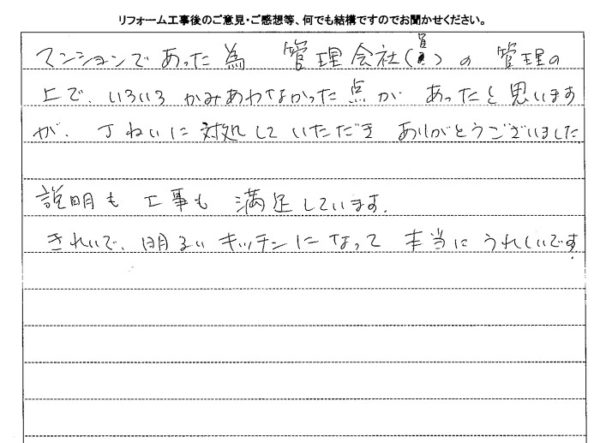 リフォーム工事後のご意見・ご感想等、何でも結構ですのでお聞かせください。
マンションであった為 管理会社(員)の管理の
上で、いろいろかみあわなかった点があったと思います
が、丁ねいに対処していただきありがとうございました
説明も工事も満足しています.
きれいで、明るいキッチンになって本当にうれしいです